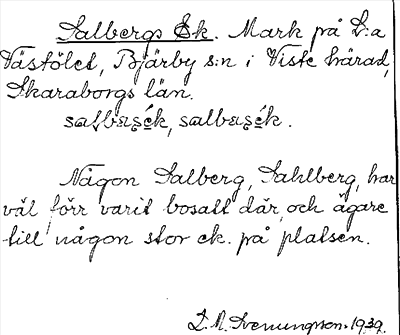 Salbergs Ek. Mark på L:a
Västölet, Bjärby s:n i Viste härad,
Skaraborgs län.
salbæʂék, salbaʂék.
Någon Salberg, Sahlberg, har
väl förr varit bosatt där, och ägare
till någon stor ek. på platsen.
L. M. Svenungsson. 1939.